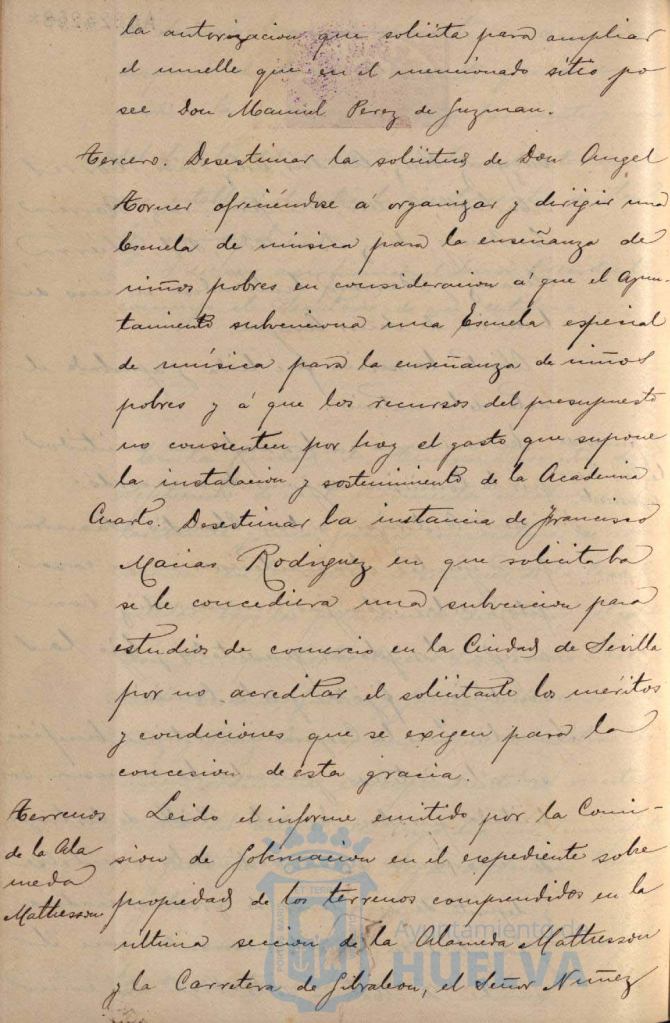 la autorizacion que solicita para ampliar
el muelle que en el mencionado sitio po
see Don Manuel Perez de Guzman.
Tercero. Desestimar la solicitud de Don Angel
Torner ofreciéndose á organizar y dirigir una
Escuela de música para la enseñanza de
niños pobres en consideracion á que el Ayun-
tamiento subvenciona una Escuela especial
de música para la enseñanza de niños
pobres y á que los recursos del presupuesto
no consienten por hoy el gasto que supone
la instalacion y sostenimiento de la Academia
Cuarto. Desestimar la instancia de Francisco
Macias Rodriguez en que solicitaba
se le concediera una subvencion para
estudios de comercio en la Ciudad de Sevilla
por no acreditar el solicitante los méritos
y condiciones que se exigen para la
concesion de esta gracia.
Terrenos
de la Ala
meda
Mathesson
Leido el informe emitido por la Comi-
sion de Gobernacion en el espediente sobre
propiedad de los terrenos comprendidos en la
ultima seccion de la Alameda Mathesson
y la Carretera de Gibraleon, el Señor Nuñez
Ayuntamiento de
HUELVA